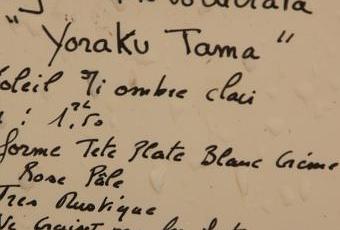 " Yoraku Tama "
Soleil 1/2 ombre clair
: 1,50
forme Tete Plate Blanc Crème
Rose Pâle
Tres Rustique